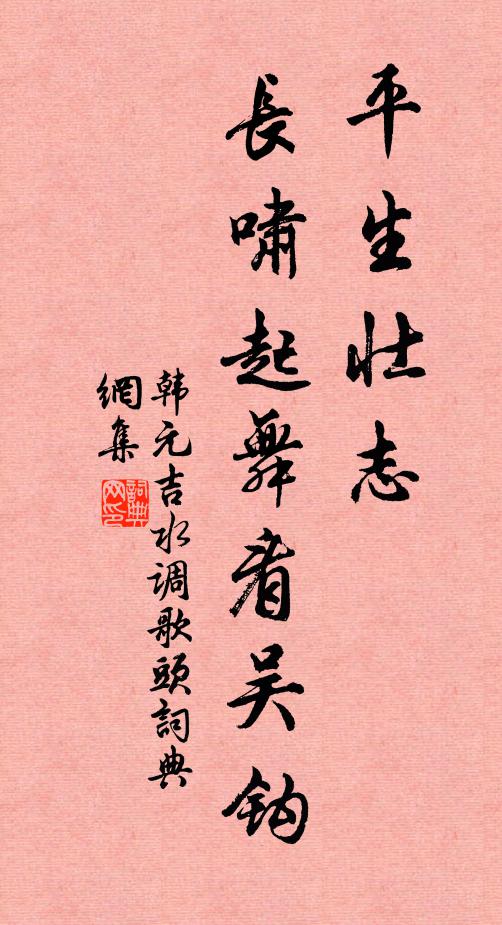 平生壮志
長嘯起舞看吴鈎
韩元吉水调歌頭詞典
網集
詞典
网印